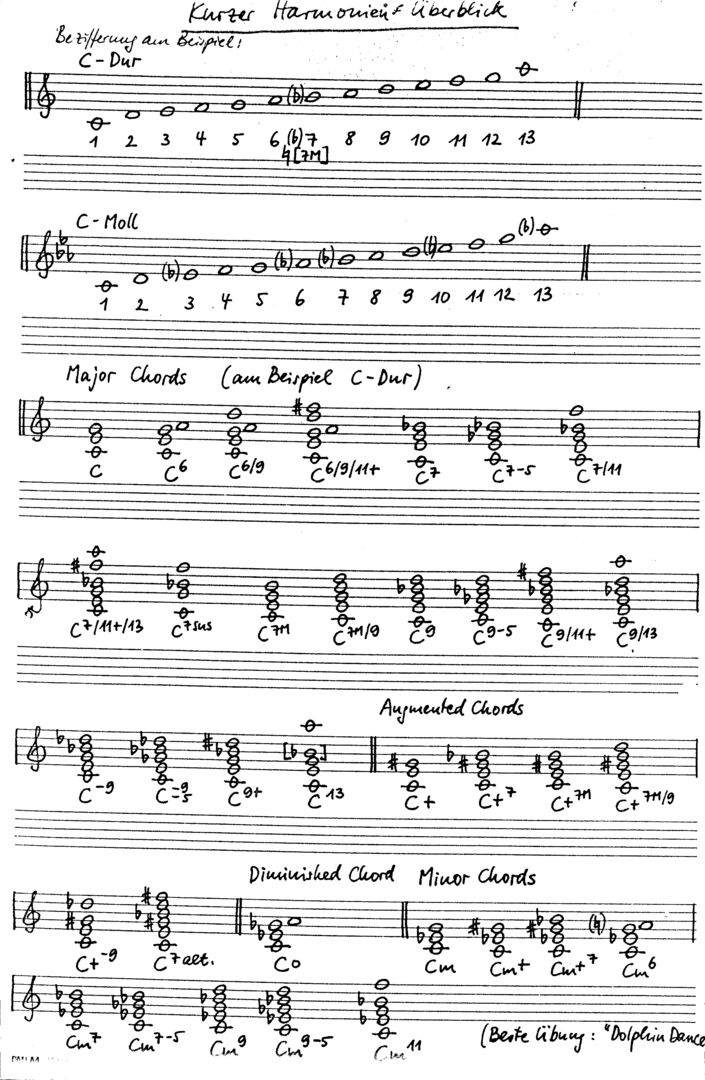 Kurzer Harmonien-Überblick
Bezifferung am Beispiel:
C-Dur
(b)
1 2 3 4 5 6 (b)7 8 9 10 11 12 13
♮[7M]
C-Moll
(b) (b) (b) (b) (b)
1 2 3 4 5 6 7 8 9 10 11 12 13
Major Chords (am Beispiel C-Dur)
C C6 C6/9 C6/9/11+ C7 C7-5 C7/11
C7/11+/13 C7sus C7M C7M/9 C9 C9-5 C9/11+ C9/13
Augmented Chords
C-9 C-9-5 C9+ C13 C+ C+7 C+7M C+7M/9
Diminished Chord Minor Chords
C+-9 C7alt. Co Cm Cm+ Cm+7 Cm6
Cm7 Cm7-5 Cm9 Cm9-5 Cm11
(Beste Übung: "Dolphin Dance